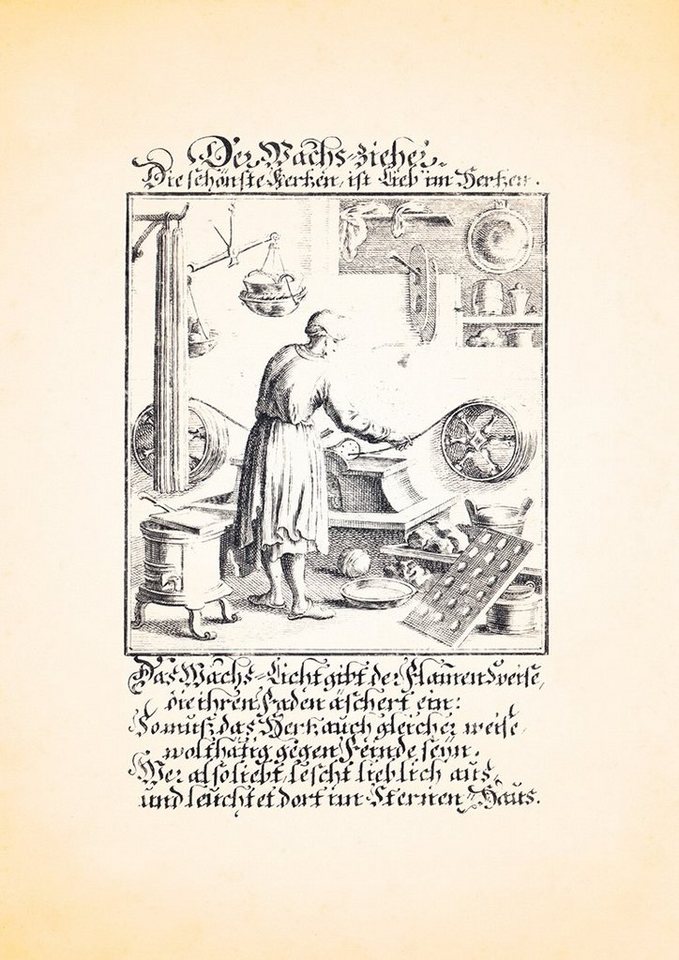 Der Wachs-zieher.
Die schönste Kertzen, ist Lieb im Hertzen.
Das Wachs-Licht gibt der Flam̄en Speise,
die ihren Faden äschert ein:
So muß das Hertz auch gleicher weise
wolthätig gegen Feinde seyn.
Wer also liebt, lescht lieblich aus,
und leuchtet dort im Sternen-Haus.